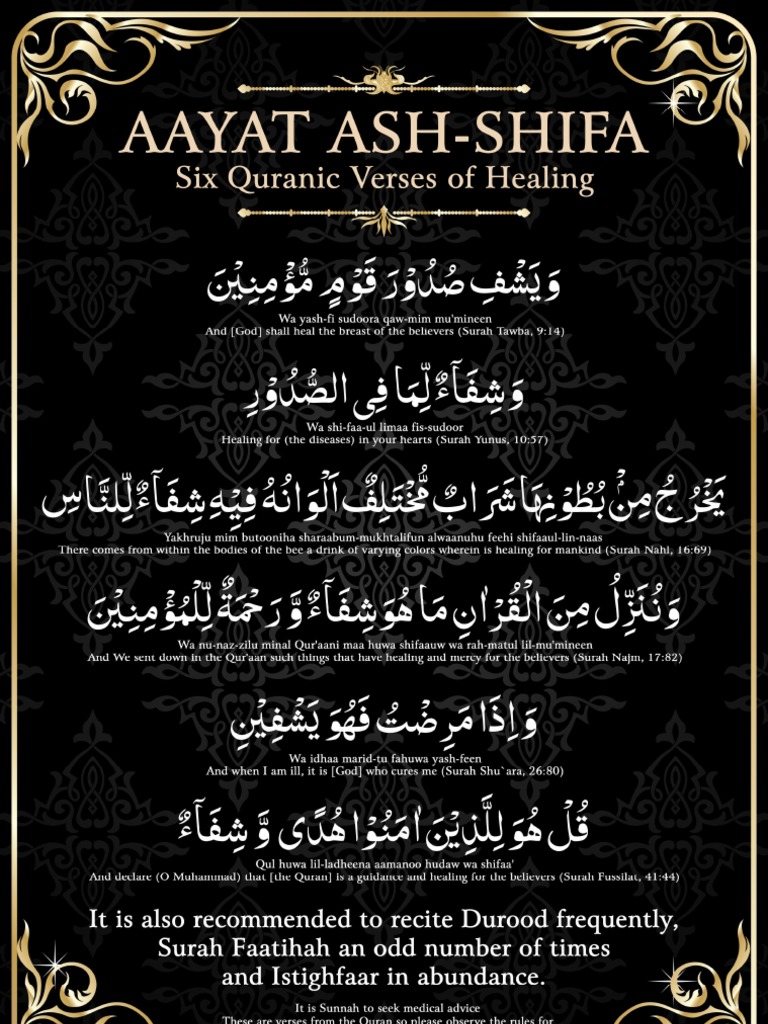 AAYAT ASH-SHIFA
Six Quranic Verses of Healing
وَيَشْفِ صُدُوْرَ قَوْمٍ مُّؤْمِنِيْنَ
Wa yash-fi sudoora qaw-mim mu'mineen
And [God] shall heal the breast of the believers (Surah Tawba, 9:14)
وَشِفَآءٌ لِّمَا فِى الصُّدُوْرِ
Wa shi-faa-ul limaa fis-sudoor
Healing for (the diseases) in your hearts (Surah Yunus, 10:57)
يَخْرُجُ مِنْۢ بُطُوْنِهَا شَرَابٌ مُّخْتَلِفٌ اَلْوَانُهُ فِيْهِ شِفَآءٌ لِّلنَّاسِ
Yakhruju mim butooniha sharaabum-mukhtalifun alwaanuhu feehi shifaaul-lin-naas
There comes from within the bodies of the bee a drink of varying colors wherein is healing for mankind (Surah Nahl, 16:69)
وَنُنَزِّلُ مِنَ الْقُرْاٰنِ مَا هُوَ شِفَآءٌ وَّ رَحْمَةٌ لِّلْمُؤْمِنِيْنَ
Wa nu-naz-zilu minal Qur'aani maa huwa shifaauw wa rah-matul lil-mu'mineen
And We sent down in the Qur'aan such things that have healing and mercy for the believers (Surah Najm, 17:82)
وَاِذَا مَرِضْتُ فَهُوَ يَشْفِيْنِ
Wa idhaa marid-tu fahuwa yash-feen
And when I am ill, it is [God] who cures me (Surah Shu`ara, 26:80)
قُلْ هُوَ لِلَّذِيْنَ اٰمَنُوْا هُدًى وَّ شِفَآءٌ
Qul huwa lil-ladheena aamanoo hudaw wa shifaa'
And declare (O Muhammad) that [the Quran] is a guidance and healing for the believers (Surah Fussilat, 41:44)
It is also recommended to recite Durood frequently,
Surah Faatihah an odd number of times
and Istighfaar in abundance.
It is Sunnah to seek medical advice
These are verses from the Quran so please observe the rules for